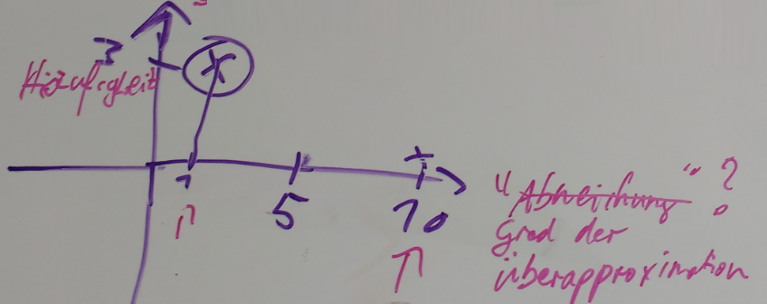 3
Häufigkeit
1
5
10
"Abweichung" ?
Grad der
überapproximation